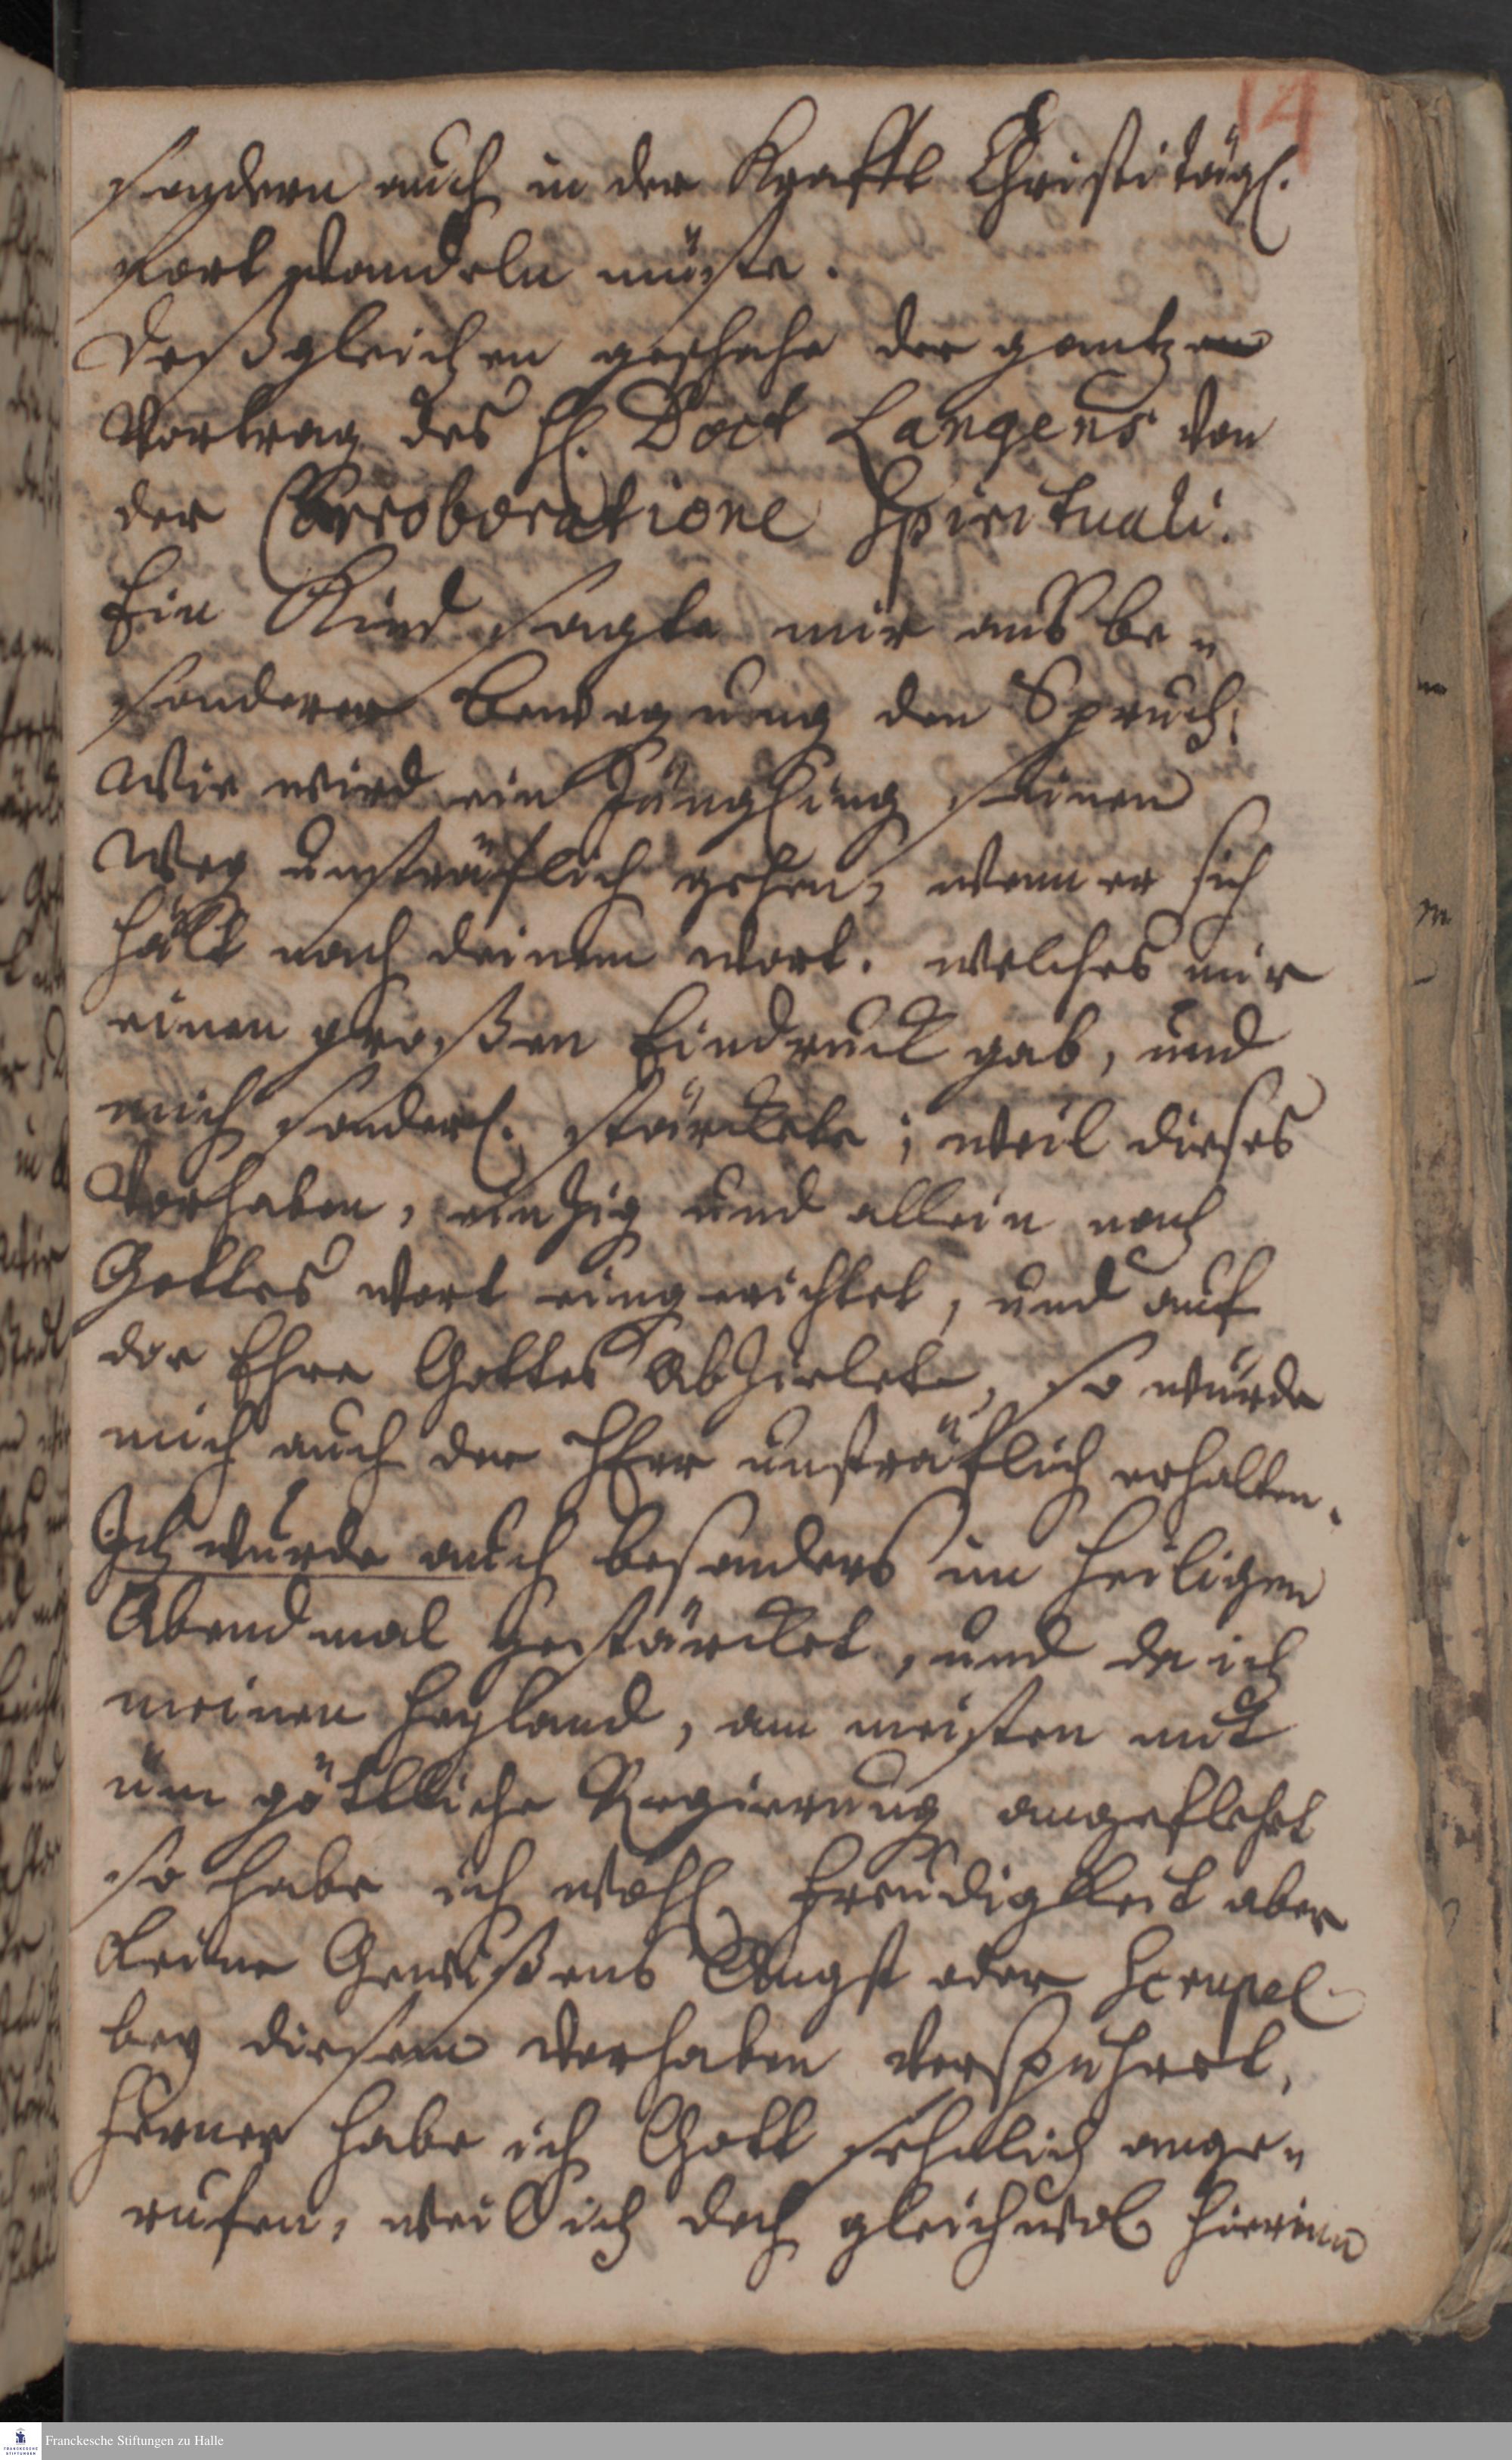 14
sondern auch in der Krafft Christi tägl.
fort wandeln müste.
Deßgleichen geschahe der gantzen
Vortrag des H. Doct Langens von
der Corroboratione Spirituali.
Ein Kind sagte mir aus be„
sonderer Bewegung den Spruch:
Wie wird ein Jüngling seinen
Weg unsträflich gehen, wenn er sich
hält nach deinem wort. welches mir
einen großen Eindruck gab, und
mich sonderl. stärckete; weil dieses
Vorhaben, eintzig und allein nach
Gottes wort eingerichtet, und auf
der Ehre Gottes Abzielete, so würde
mich auch der HErr unsträflich erhalten.
Ich wurde auch besonders im heiligen
Abendmal gestärcket, und da ich
meinen Heyland, am meisten mit
üm göttliche Regierung angeflehet
so habe ich wohl Freudigkeit aber
keine Gewißens Angst oder Scrupel
bey diesem Vorhaben verspühret,
Ferner habe ich Gott sehnlich ange„
rufen, weil ich doch gleichwol hierinn
Franckesche Stiftungen zu Halle
FRANCKESCHE STIFTUNGEN